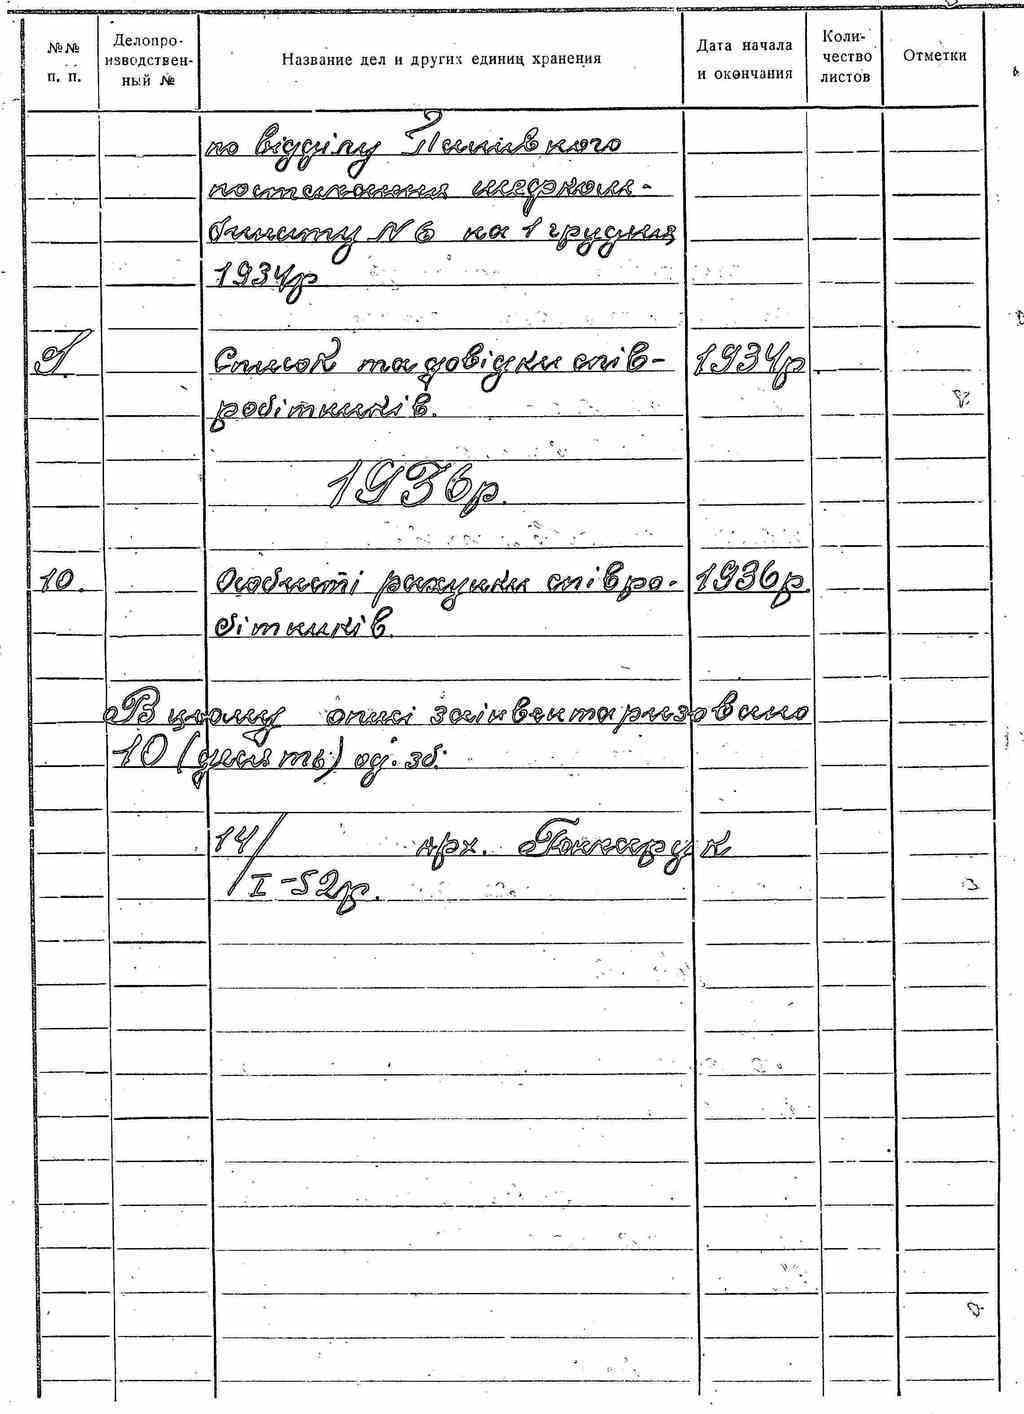 №№ п. п.
Делопроизводственный №
Название дел и других единиц хранения
Дата начала и окончания
Количество листов
Отметки
по відділу
постачання
N 6 на 1 грудня
1934р
9. Список та довідки спів- 1934р
робітників.
1936р.
10. Особисті рахунки співро- 1936р.
бітників.
В цьому опису заінвентаризовано
10 (десять) од. зб.
14/ арх. Гончарук
I-52р.